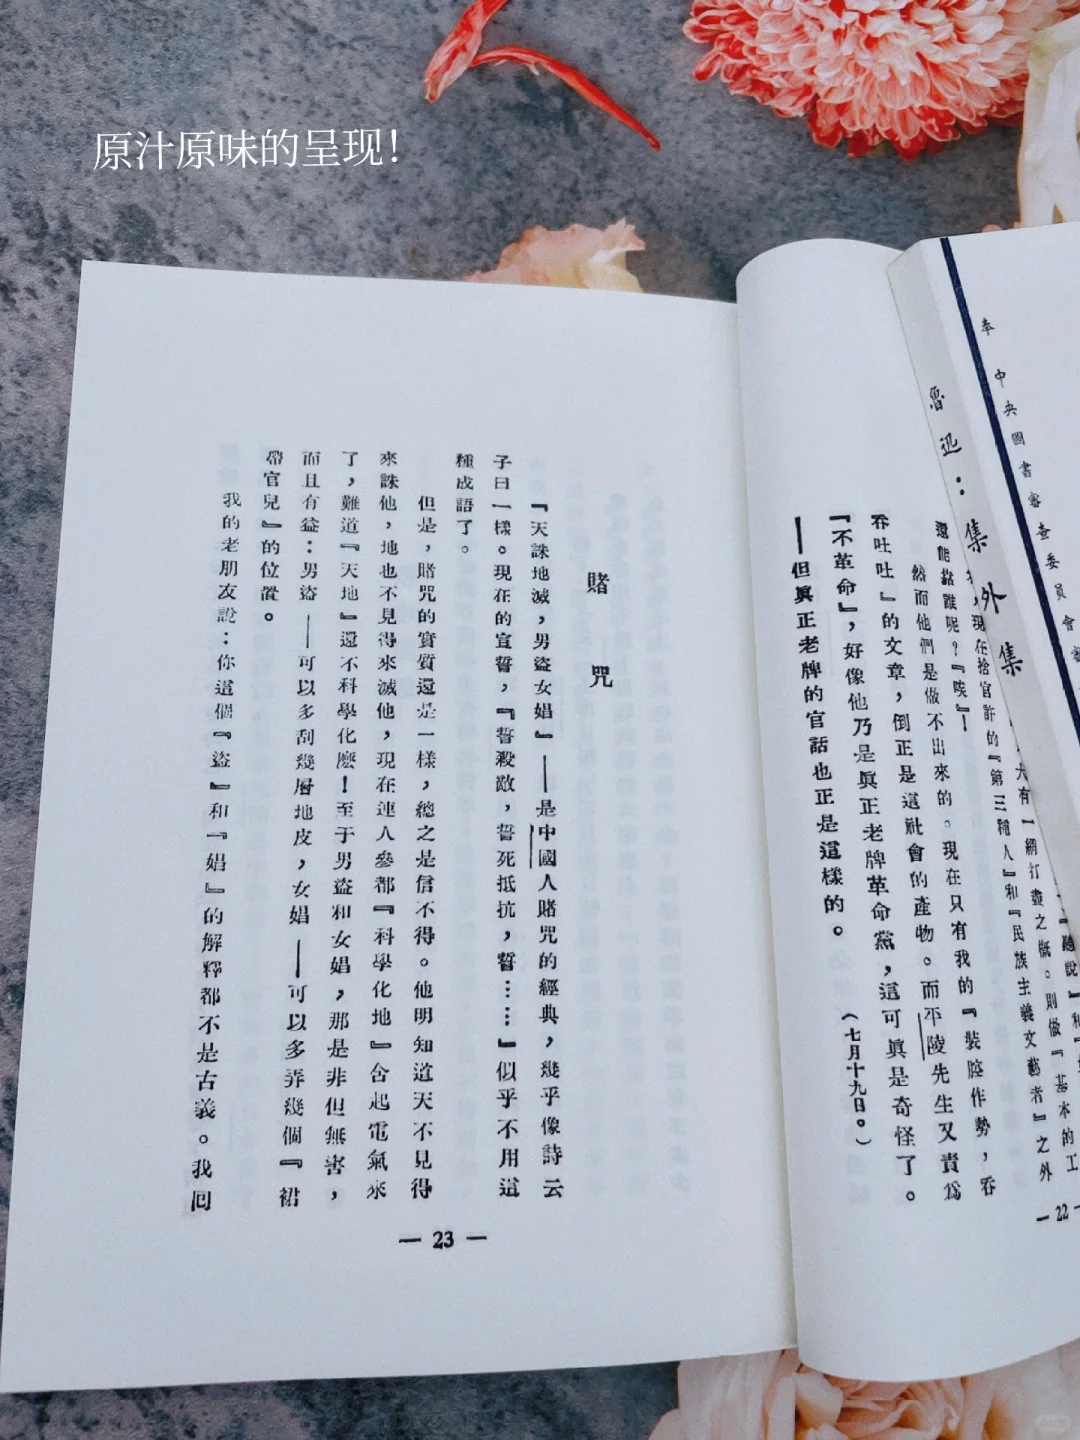 原汁原味的呈现！
奉中央圖書審查委員會審
魯迅：集外集
大有一網打盡之概。則做『基本的工
現在捨官許的『第三種人』和『民族主義文藝者』之外
還能靠誰呢？『唉』！
然而他們是做不出來的。現在只有我的『裝腔作勢，吞
吞吐吐』的文章，倒正是這社會的產物。而平陵先生又責爲
『不革命』，好像他乃是眞正老牌革命黨，這可眞是奇怪了。
——但眞正老牌的官話也正是這樣的。
（七月十九日。）
— 22 —
賭咒
『天誅地滅，男盜女娼』——是中國人賭咒的經典，幾乎像詩云
子曰一樣。現在的宣誓，『誓殺敵，誓死抵抗，誓……』似乎不用這
種成語了。
但是，賭咒的實質還是一樣，總之是信不得。他明知道天不見得
來誅他，地也不見得來滅他，現在連人參都『科學化地』含起電氣來
了，難道『天地』還不科學化麽！至于男盜和女娼，那是非但無害，
而且有益：男盜——可以多刮幾層地皮，女娼——可以多弄幾個『裙
帶官兒』的位置。
我的老朋友說：你這個『盜』和『娼』的解釋都不是古義。我囘
— 23 —